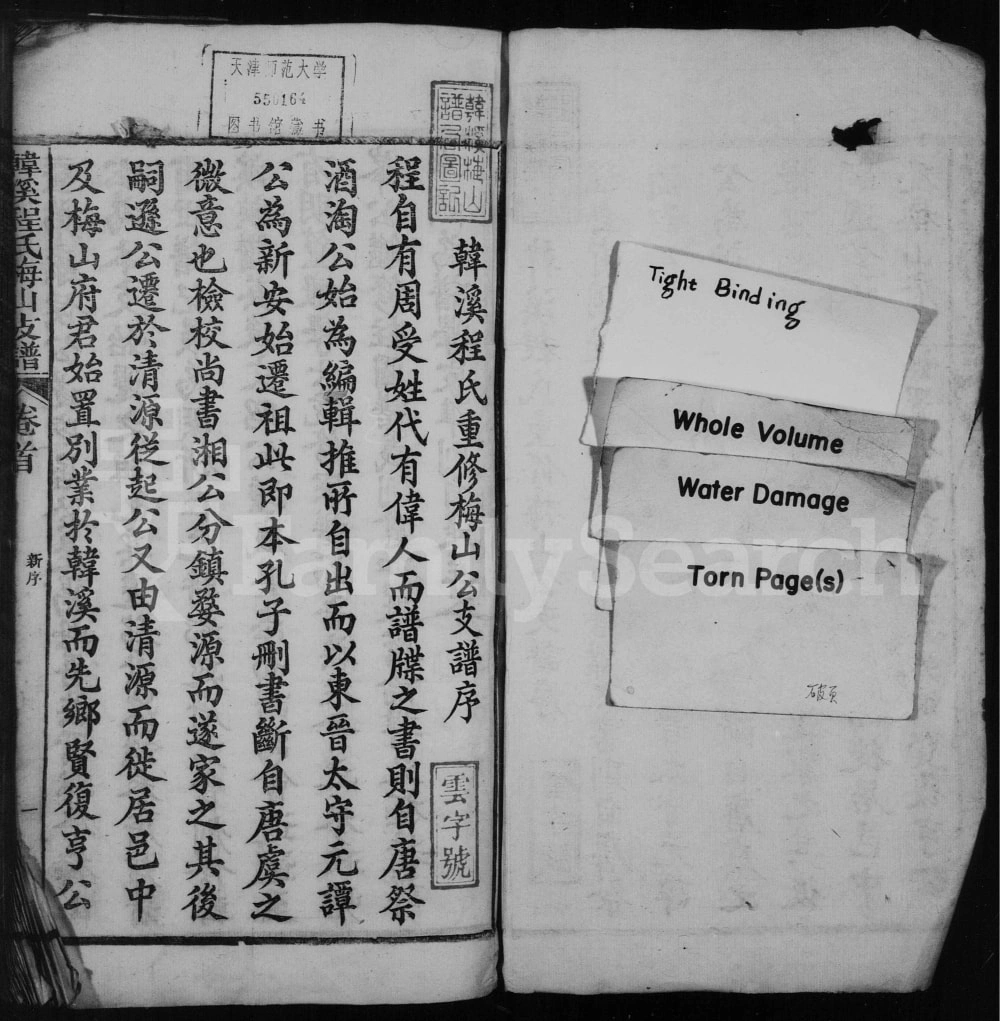 韓溪程氏重修梅山公支譜序
雲字號
程自有周受姓代有偉人而譜牒之書則自唐祭
酒淘公始為編輯推所自出而以東晉太守元譚
公為新安始遷祖此即本孔子刪書斷自唐虞之
微意也檢校尚書湘公分鎮婺源而遂家之其後
嗣遜公遷於清源從起公又由清源而徙居邑中
及梅山府君始置別業於韓溪而先鄉賢復亨公
韓溪程氏梅山支譜
卷首
新序
一
天津师范大学
550164
图书馆藏书
韓溪梅山
譜局圖記
Tight Binding
Whole Volume
Water Damage
Torn Page(s)
破頁
FamilySearch